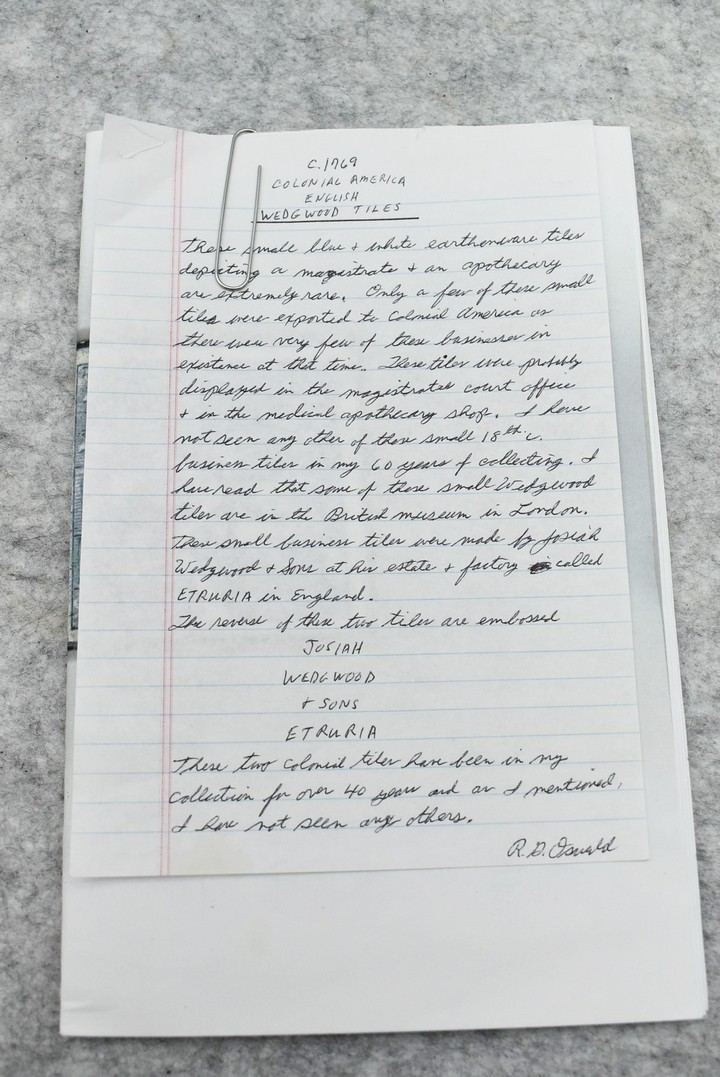 C.1769
COLONIAL AMERICA
ENGLISH
WEDGWOOD TILES
These small blue + white earthenware tiles
depicting a magistrate + an apothecary
are extremely rare. Only a few of these small
tiles were exported to Colonial America as
there were very few of these businesses in
existence at that time. These tiles were probably
displayed in the magistrates court office
+ in the medical apothecary shop. I have
not seen any other of these small 18th c.
business tiles in my 60 years of collecting. I
have read that some of these small Wedgwood
tiles are in the British museum in London.
These small business tiles were made by Josiah
Wedgwood + Sons at his estate + factory called
ETRURIA in England.
The reverse of these two tiles are embossed
JOSIAH
WEDGWOOD
+ SONS
ETRURIA
These two Colonial tiles have been in my
collection for over 40 years and as I mentioned,
I have not seen any others.
R.D. Oswald